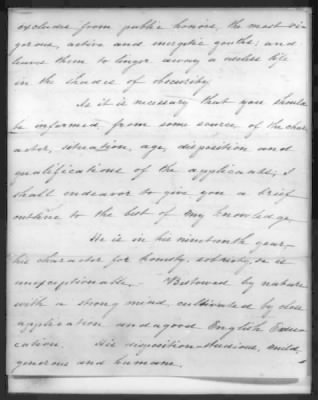 excludes from public honors, the most vi-
gorous, active and energetic youths; and
leaves them to linger away a useless life
in the shades of obscurity
As it is necessary that you should
be informed, from some source of the char-
acter, situation, age, disposition and
qualifications of the applicants, I
shall endeavor to give you a brief
outline to the best of my knowledge,
He is in his nineteenth year,
his character for honesty, sobriety, &c is
unexceptionable. Bestowed by nature
with a strong mind, cultivated by close
application and a good English Edu-
cation. His disposition studious, mild,
generous and humane.